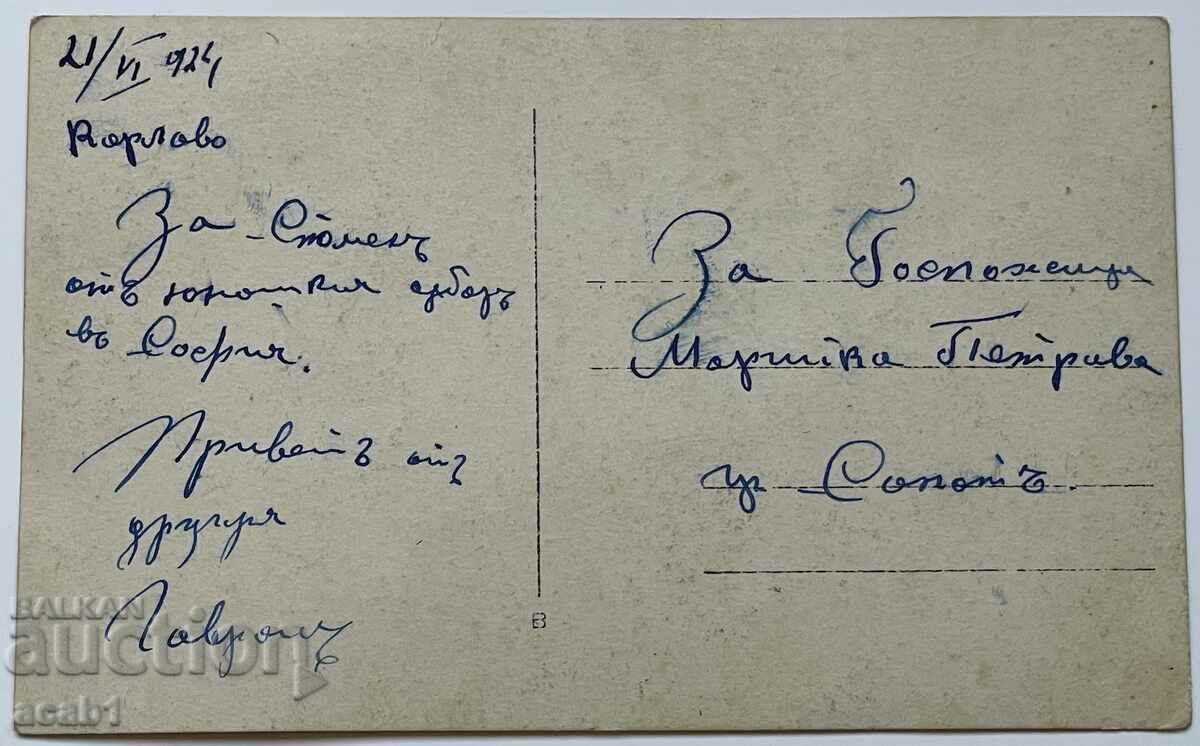 21/VI 924
Карлово
За Споменъ
отъ юношкия сборъ
въ София.
Приветъ от
другаря
За Госпожица
Марийка Петрова
гр Сопотъ.
B
BALKAN
auction
acab1